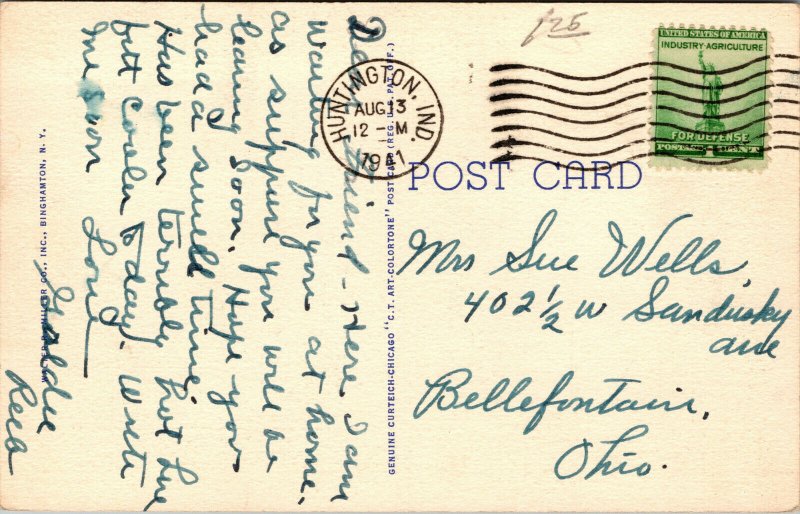 Dear Friend - Here I am
waiting for you at home.
as suppose you will be
leaving soon. Hope you
had a swell time.
Has been terribly hot here
but cooler today. Write
me soon
Love
Goldie
Reeb
GENUINE CURTEICH-CHICAGO "C. T. ART-COLORTONE" POST CARD (REG. U.S. PAT. OFF.)
CO., INC., BINGHAMTON, N. Y.
HUNTINGTON, IND.
AUG 13
12 - M
1941
UNITED STATES OF AMERICA
INDUSTRY-AGRICULTURE
FOR DEFENSE
POST CARD
Mrs Sue Wells,
402 1/2 W Sandusky
ave
Bellefontain,
Ohio.